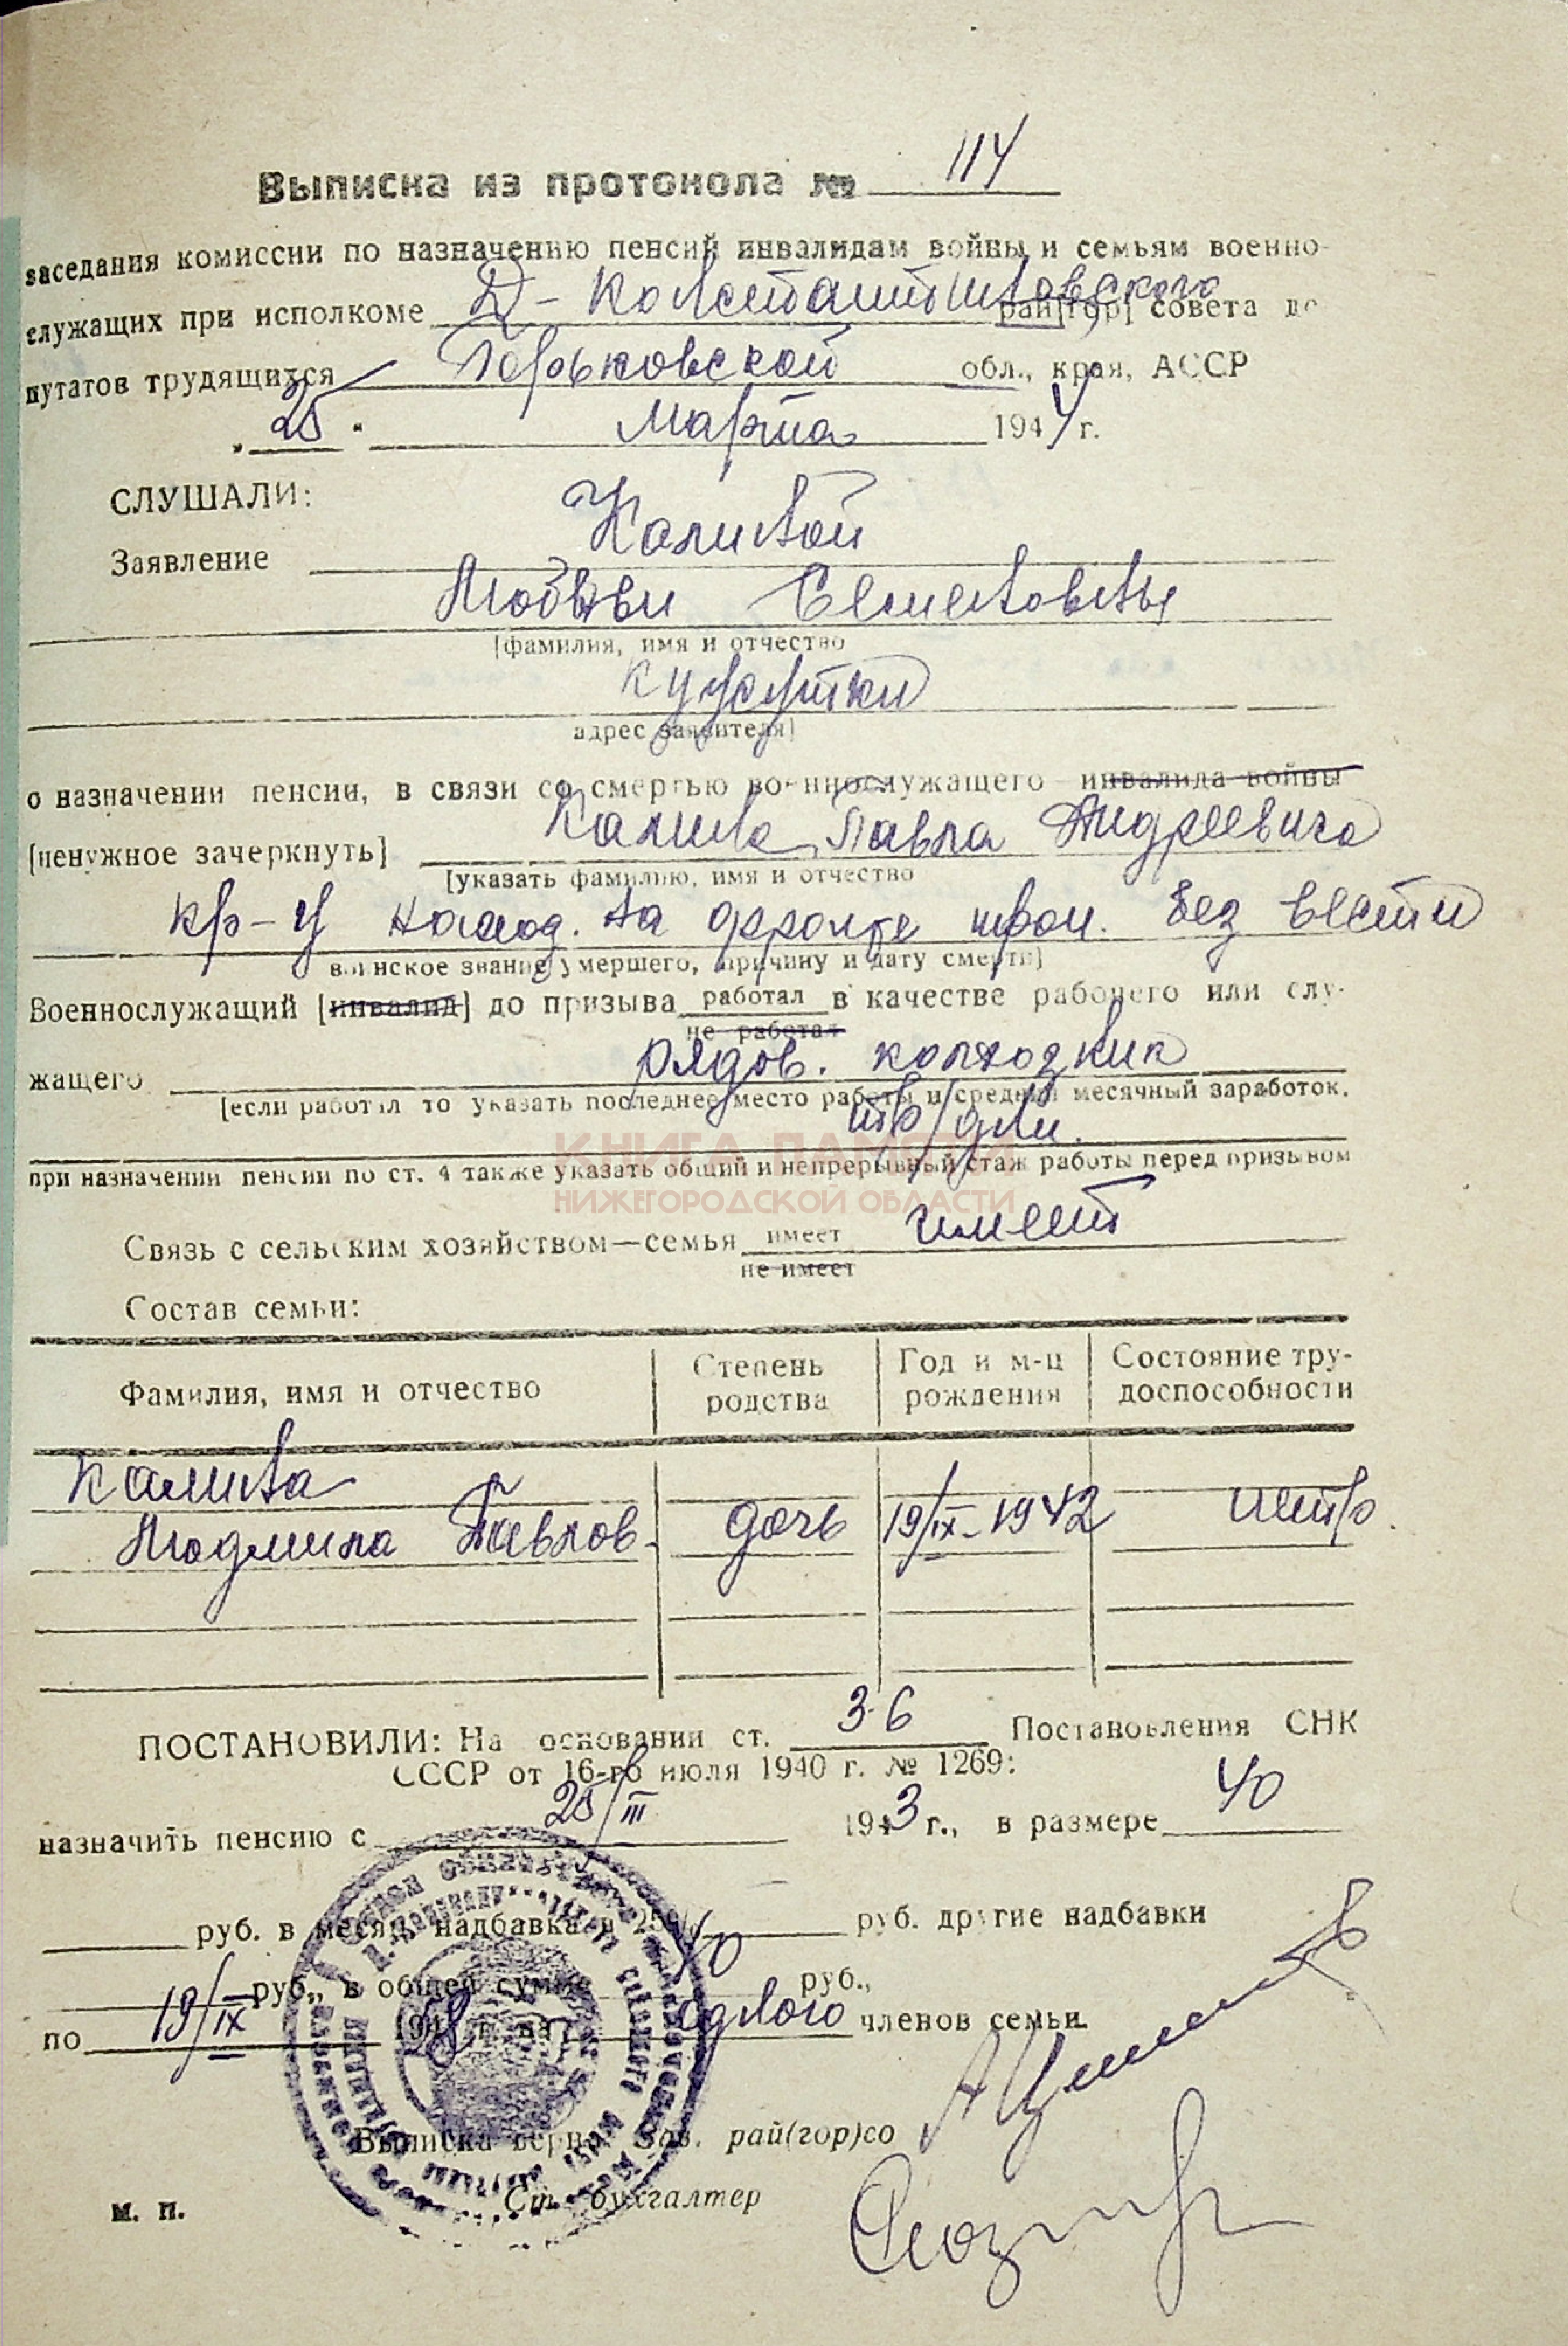 Выписка из протокола № 114
заседания комиссии по назначению пенсий инвалидам войны и семьям военно-
служащих при исполкоме Д-Константиновского рай[гор] совета де
путатов трудящихся Горьковской обл., края, АССР
„25" марта 1944 г.
СЛУШАЛИ:
Заявление Калиной
Любови Семеновны
[фамилия, имя и отчество
адрес заявителя]
о назначении пенсии, в связи со смертью военнослужащего инвалида войны
[ненужное зачеркнуть] Калина Павла Андреевича
[указать фамилию, имя и отчество
кр-ц наход. на фронте проп. без вести
воинское звание умершего, причину и дату смерти]
Военнослужащий [инвалид] до призыва работал в качестве рабочего или слу-
не работал
жащего рядов. колхозник
[если работал то указать последнее место работы и средний месячный заработок,
тр/дни.
КНИГА ПАМЯТИ
при назначении пенсии по ст. 4 также указать общий и непрерывный стаж работы перед призывом
НИЖЕГОРОДСКОЙ ОБЛАСТИ
Связь с сельским хозяйством—семья имеет имеет
не имеет
Состав семьи:
Фамилия, имя и отчество Степень родства Год и м-ц рождения Состояние тру-доспособности
Калина
Людмила Павлов. дочь 19/IX-1942 нетр.
ПОСТАНОВИЛИ: На основании ст. 3-6 Постановления СНК
СССР от 16-го июля 1940 г. № 1269:
назначить пенсию с 25/III 1943 г., в размере 40
руб. в месяц, надбавка в 25% руб. другие надбавки
руб., в общей сумме 40 руб.,
по 19/IX 1958 г. на одного членов семьи.
Выписка верна: Зав. рай(гор)со
м. п. Ст. бухгалтер